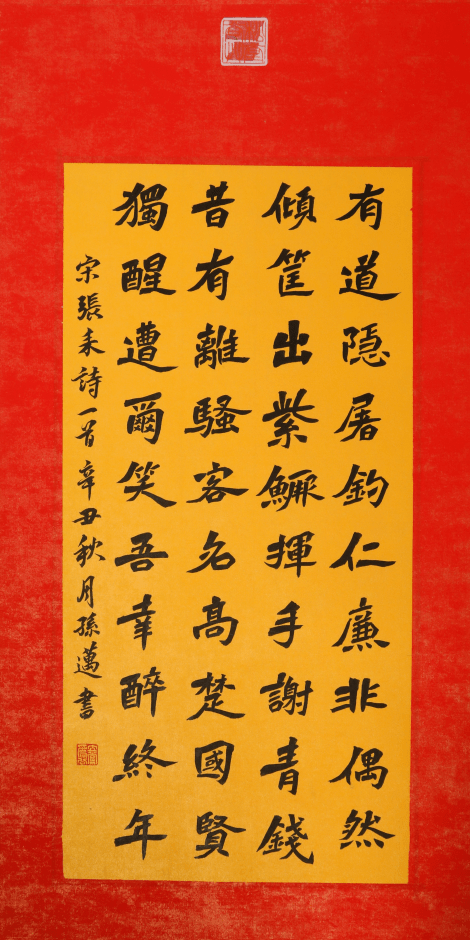 有道隐屠釣仁廉非偶然
傾筐出紫鱖揮手謝青錢
昔有離騷客名高楚國賢
獨醒遭爾笑吾幸醉終年
宋張耒詩一首辛丑秋月孫邁書